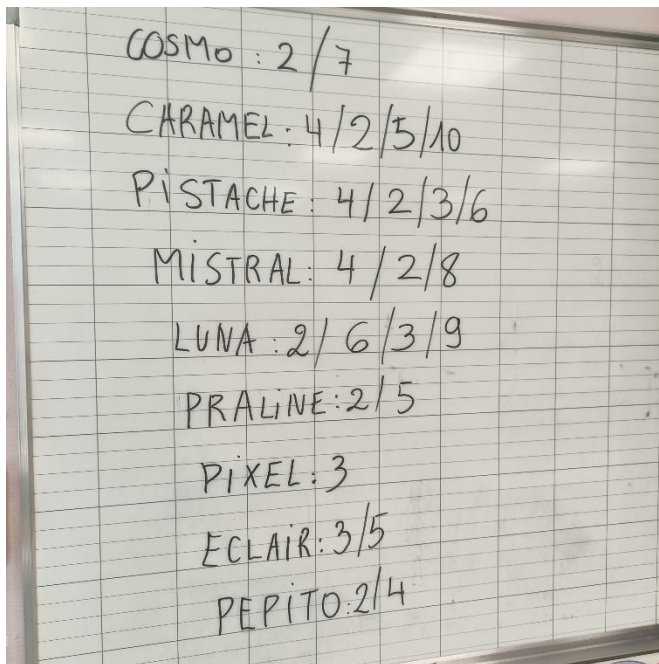 COSMO : 2/7
CARAMEL: 4/2/5/10
PiSTACHE: 4/2/3/6
MiSTRAL: 4/2/8
LUNA: 2/6/3/9
PRALiNE: 2/5
PiXEL: 3
ECLAiR: 3/5
PEPiTO: 2/4